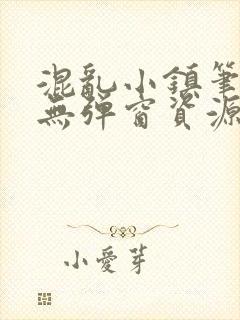 混亂小鎮筆
無彈窗資源
小愛芽